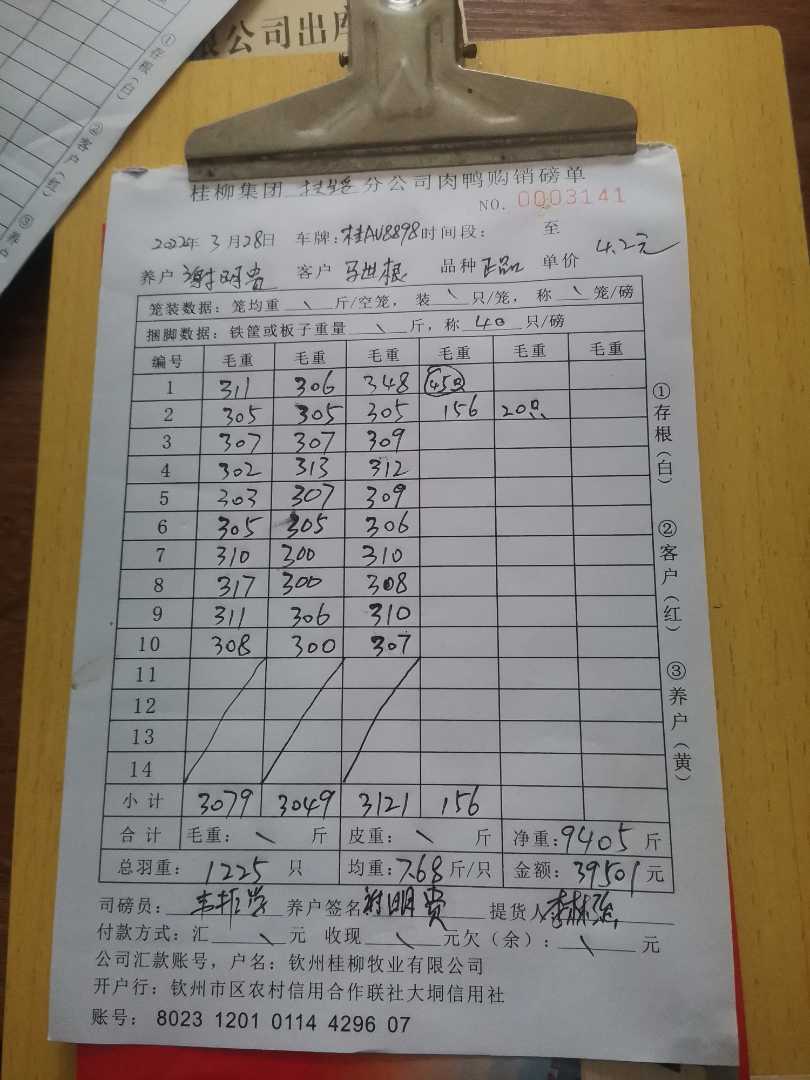 限公司出库
①存根（白）
②客户（红）
③养户
桂柳集团 分公司肉鸭购销磅单
NO. 0003141
2022年 3月28日 车牌：桂AU8898 时间段： 至
养户 谢明贵 客户 马世根 品种 正品 单价 4.2元
笼装数据：笼均重 \ 斤/空笼， 装 \ 只/笼， 称 \ 笼/磅
捆脚数据：铁筐或板子重量 \ 斤，称 40 只/磅
编号 毛重 毛重 毛重 毛重 毛重 毛重
1 311 306 348 45只
2 305 305 305 156 20只
3 307 307 309
4 302 313 312
5 303 307 309
6 305 305 306
7 310 300 310
8 317 300 308
9 311 306 310
10 308 300 307
11
12
13
14
小计 3079 3049 3121 156
合计 毛重： \ 斤 皮重： \ 斤 净重：9405 斤
总羽重： 1225 只 均重：7.68 斤/只 金额：39501 元
司磅员： 养户签名 谢明贵 提货人
付款方式：汇 \ 元 收现 \ 元欠（余）： \ 元
公司汇款账号，户名：钦州桂柳牧业有限公司
开户行：钦州市区农村信用合作联社大垌信用社
账号： 8023 1201 0114 4296 07
①存根（白）
②客户（红）
③养户（黄）